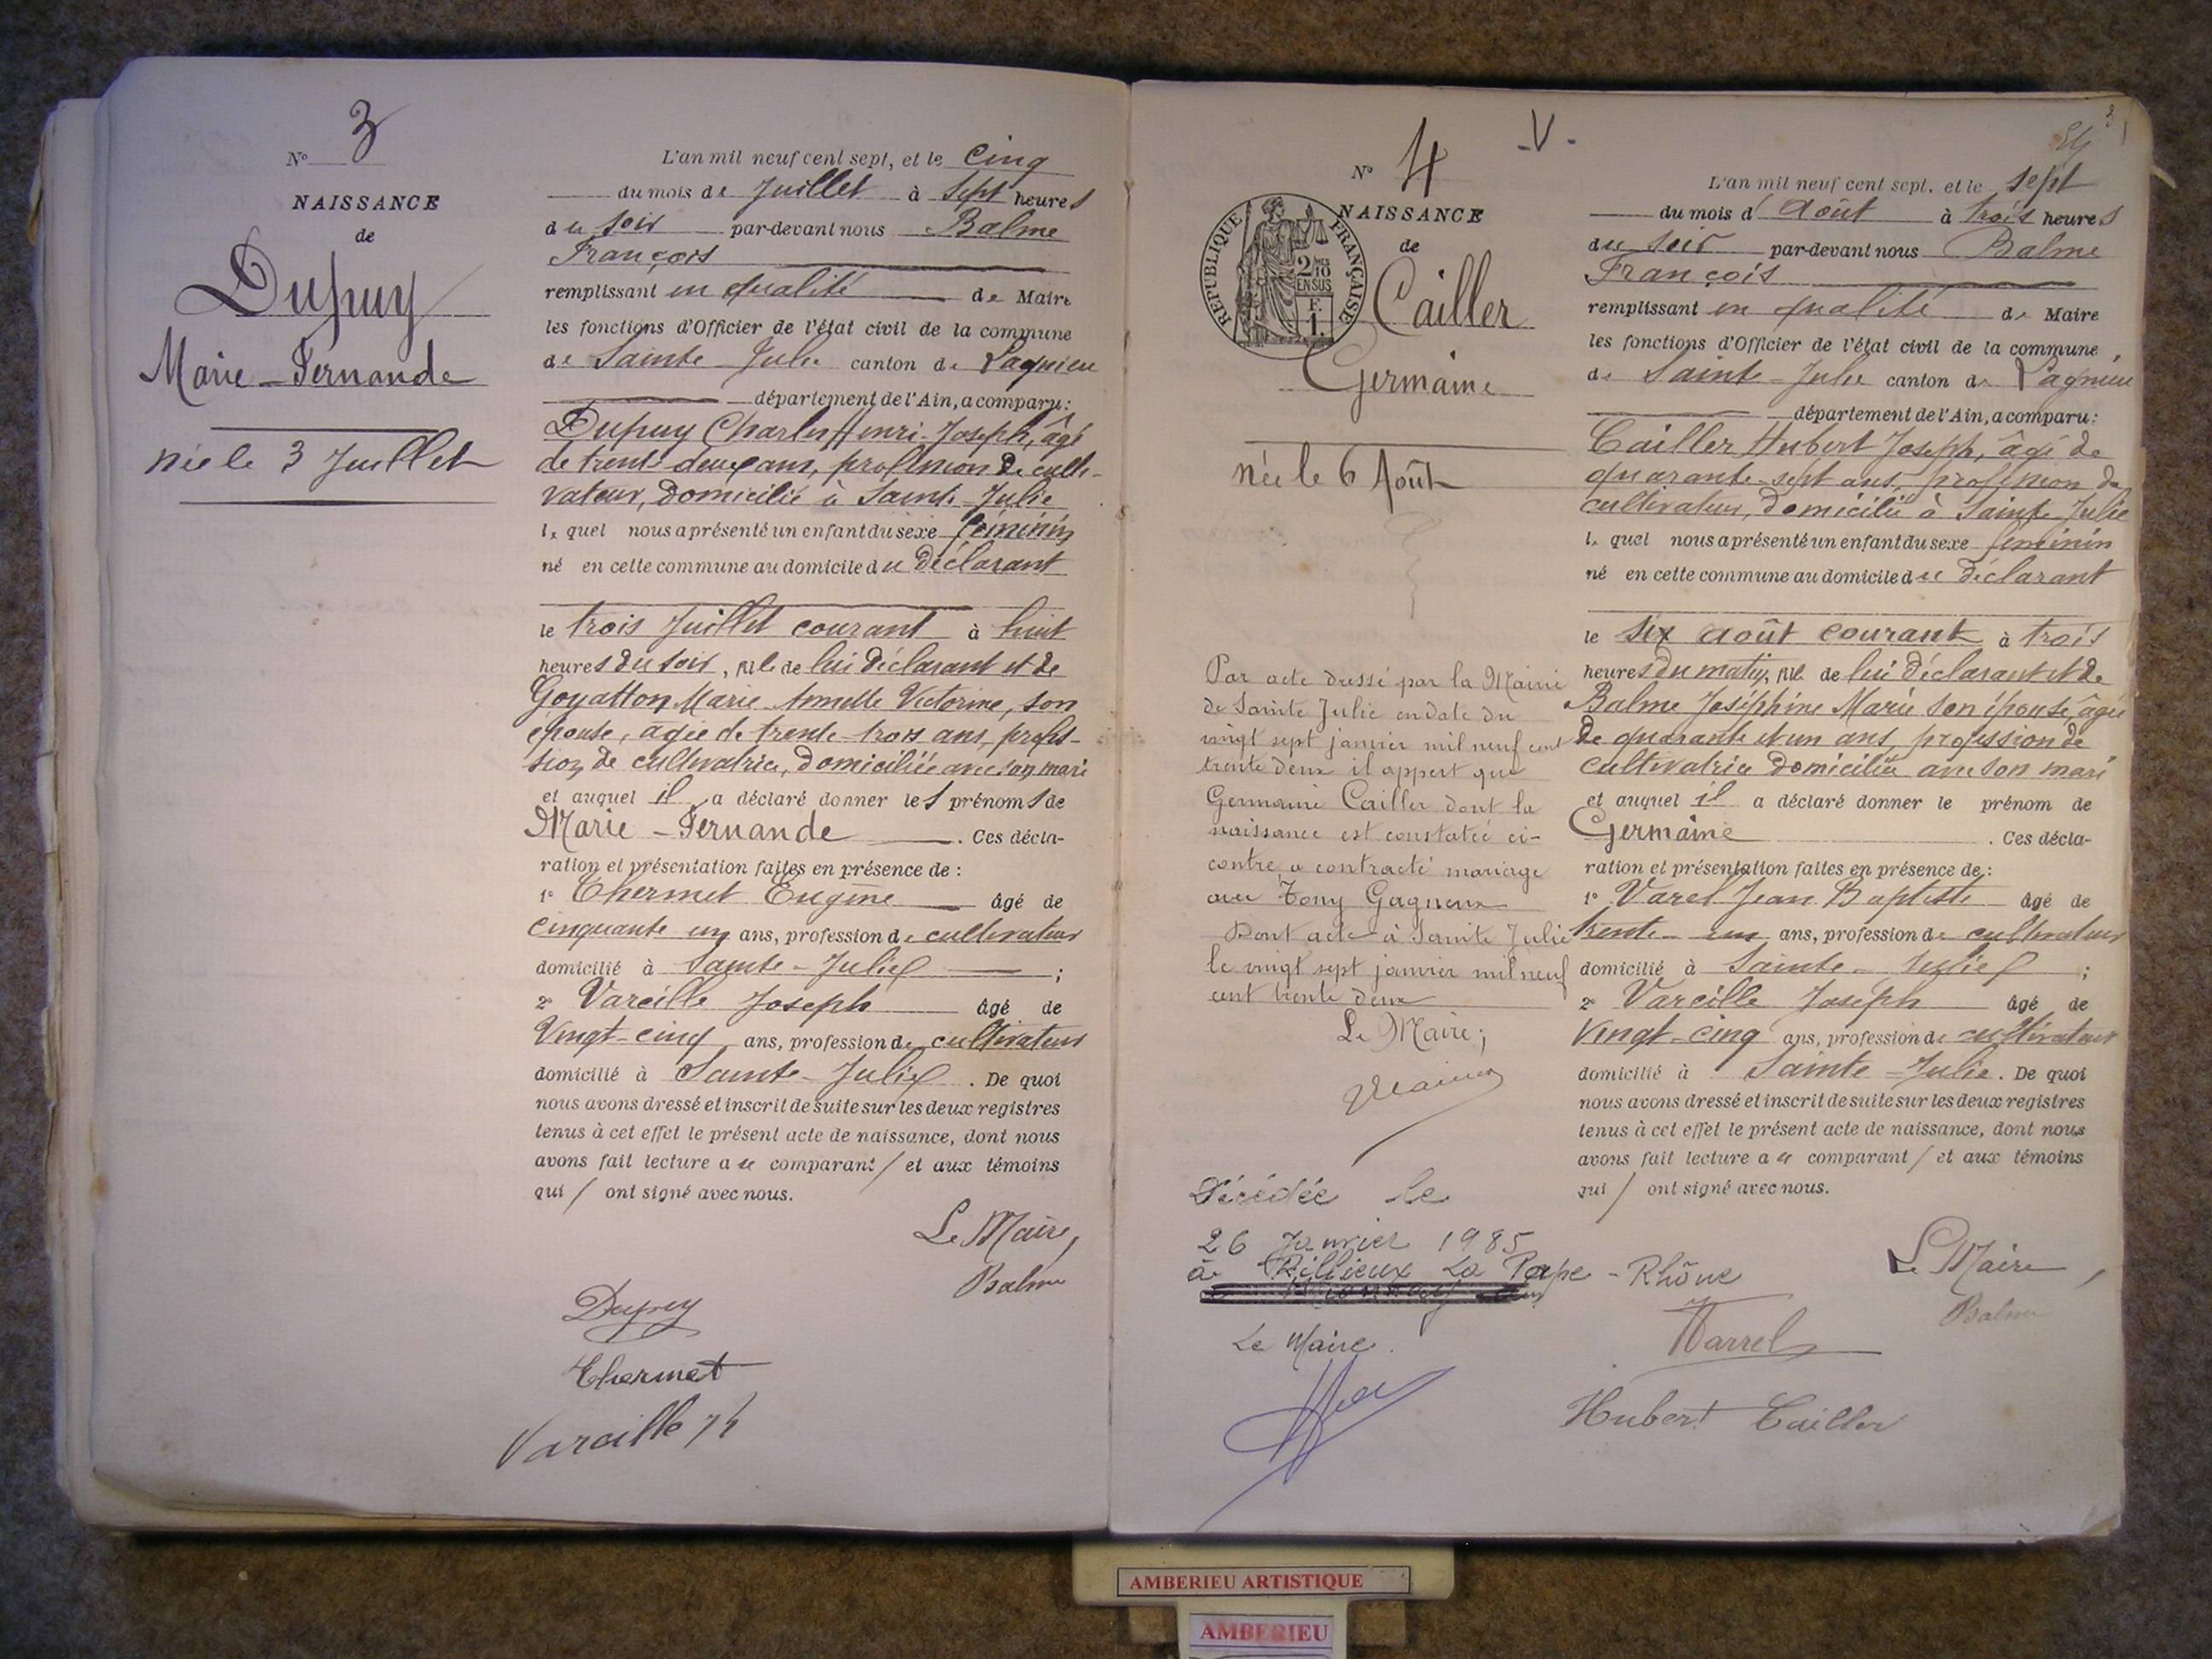 N° 3
NAISSANCE
de
Dupuy
Marie-Fernande
née le 3 Juillet
L'an mil neuf cent sept, et le cinq
du mois de Juillet à sept heures
du soir par-devant nous Balme
François
remplissant en qualité de Maire
les fonctions d'Officier de l'état civil de la commune
de Sainte-Julie canton de Lagnieu
département de l'Ain, a comparu:
Dupuy Charles Henri-Joseph, âgé
de trente deux ans, profession de culti-
vateur, domicilié à Sainte-Julie
lequel nous a présenté un enfant du sexe féminin
né en cette commune au domicile du déclarant
le trois Juillet courant à huit
heures du soir, fille de lui déclarant et de
Goyatton Marie Victorine, son
épouse, âgée de trente-trois ans, profes-
sion de cultivatrice, domiciliée avec son mari
et auquel il a déclaré donner les prénoms de
Marie-Fernande. Ces décla-
ration et présentation faites en présence de:
1° Thermet Eugène âgé de
cinquante un ans, profession de cultivateur
domicilié à Sainte-Julie;
2° Vareille Joseph âgé de
Vingt-cinq ans, profession de cultivateur
domicilié à Sainte-Julie. De quoi
nous avons dressé et inscrit de suite sur les deux registres
tenus à cet effet le présent acte de naissance, dont nous
avons fait lecture au comparant / et aux témoins
qui / ont signé avec nous.
Le Maire,
Balme
Dupuy
Thermet
Vareille Jh
-V-
N° 4
NAISSANCE
de
RÉPUBLIQUE FRANÇAISE
2/10
EN SUS
F.
1.
Cailler
Germaine
née le 6 Août
Par acte dressé par la Mairie
de Sainte Julie en date du
vingt sept janvier mil neuf cent
trente deux il appert que
Germaine Cailler dont la
naissance est constatée ci-
contre, a contracté mariage
avec Tony Gagneux
Dont acte à Sainte Julie
le vingt sept janvier mil neuf
cent trente deux
Le Maire;
Décédée le
26 Janvier 1985
à Rillieux La Pape - Rhône
Le Maire.
L'an mil neuf cent sept, et le sept
du mois d'Août à trois heures
du soir par-devant nous Balme
François
remplissant en qualité de Maire
les fonctions d'Officier de l'état civil de la commune
de Sainte-Julie canton de Lagnieu
département de l'Ain, a comparu:
Cailler Hubert Joseph, âgé de
quarante-sept ans, profession de
cultivateur, domicilié à Sainte Julie
lequel nous a présenté un enfant du sexe féminin
né en cette commune au domicile du déclarant
le six août courant à trois
heures du matin, fille de lui déclarant et de
Balme Joséphine Marie son épouse, âgée
de quarante et un ans, profession de
cultivatrice domiciliée avec son mari
et auquel il a déclaré donner le prénom de
Germaine. Ces décla-
ration et présentation faites en présence de:
1° Varel Jean Baptiste âgé de
trente-un ans, profession de cultivateur
domicilié à Sainte-Julie;
2° Vareille Joseph âgé de
Vingt-cinq ans, profession de cultivateur
domicilié à Sainte-Julie. De quoi
nous avons dressé et inscrit de suite sur les deux registres
tenus à cet effet le présent acte de naissance, dont nous
avons fait lecture au comparant / et aux témoins
qui / ont signé avec nous.
Le Maire,
Balme
Varrel
Hubert Cailler
AMBERIEU ARTISTIQUE
AMBERIEU